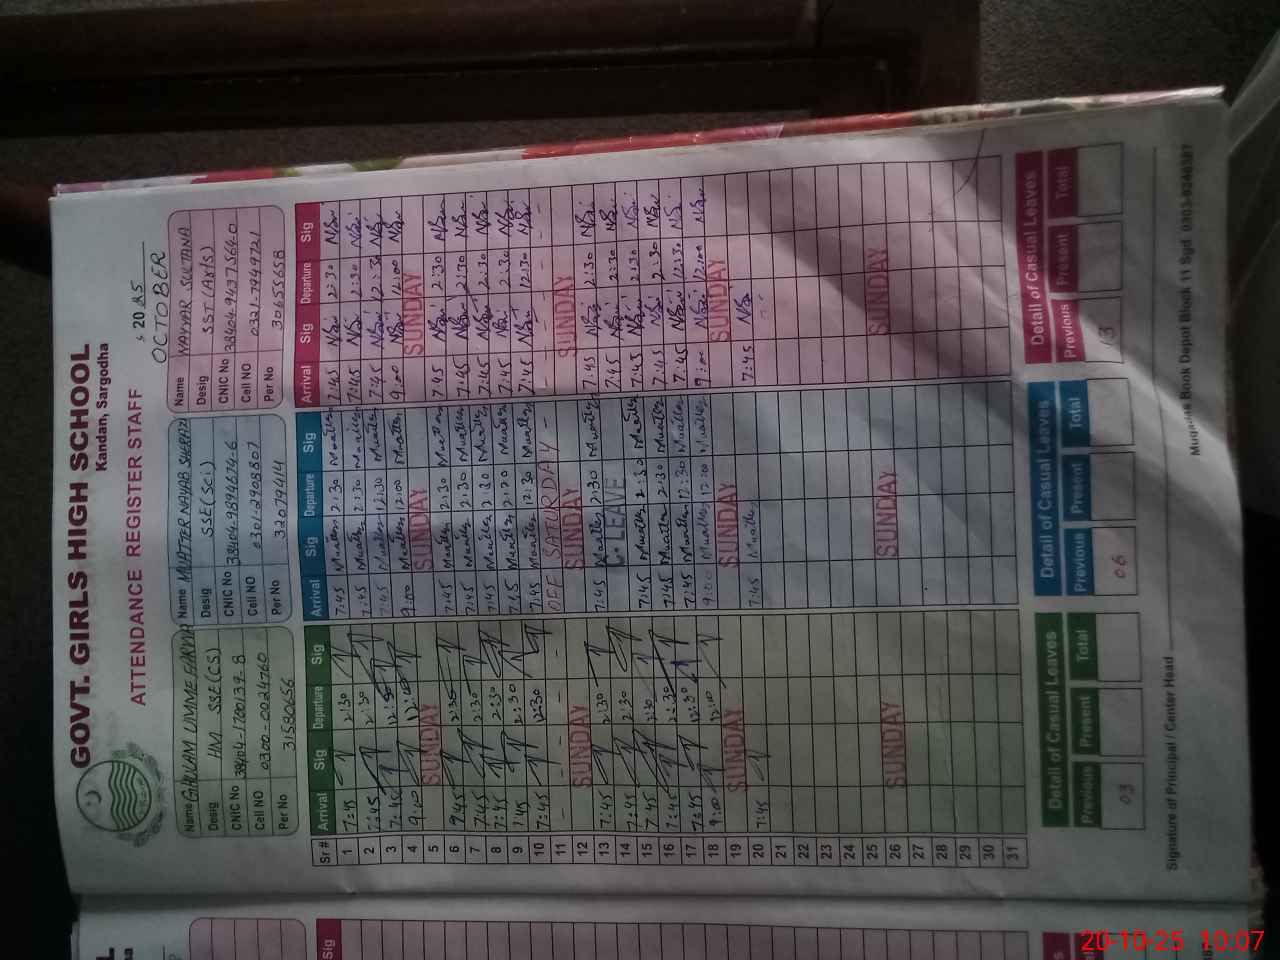 GOVT. GIRLS HIGH SCHOOL
Kandan, Sargodha
ATTENDANCE REGISTER STAFF
, 20 25
OCTOBER
Name GHULAM UMME FARWA
Desig HM SSE(CS)
CNIC No
Cell NO 0300-0024760
Per No 31580656
Name MUATTER NAYAB
Desig SSE(Sc)
CNIC No 38404-9894674-6
Cell NO 0301-2908807
Per No 32079414
Name NAYYAR SULTANA
Desig SST (Ar/s)
CNIC No 38404-9437564-0
Cell NO 0321-7949721
Per No 30655658
Sr # Arrival Sig Departure Sig Arrival Sig Departure Sig Arrival Sig Departure Sig
1 7:45 2:30 7:45 Muatter 2:30 Muatter 7:45 2:30
2 7:45 2:30 7:45 Muatter 2:30 Muatter 7:45 2:30
3 7:45 12:30 7:45 Muatter 12:30 Muatter 7:45 12:30
4 9:00 12:00 9:00 Muatter 12:00 Muatter 9:00 12:00
5 SUNDAY SUNDAY SUNDAY
6 7:45 2:30 7:45 Muatter 2:30 Muatter 7:45 2:30
7 7:45 2:30 7:45 Muatter 2:30 Muatter 7:45 2:30
8 7:45 2:30 7:45 Muatter 2:30 Muatter 7:45 2:30
9 7:45 2:30 7:45 Muatter 2:20 Muatter 7:45 2:30
10 7:45 12:30 7:45 Muatter 12:30 Muatter 7:45 12:30
11 OFF SATURDAY
12 SUNDAY SUNDAY SUNDAY
13 7:45 2:30 7:45 Muatter 2:30 Muatter 7:45 2:30
14 7:45 2:30 C. LEAVE 7:45 2:30
15 7:45 2:30 7:45 Muatter 2:30 Muatter 7:45 2:30
16 7:45 2:30 7:45 Muatter 2:30 Muatter 7:45 2:30
17 7:45 12:30 7:45 Muatter 12:30 Muatter 7:45 12:30
18 9:00 12:00 9:00 Muatter 12:00 Muatter 9:00 12:00
19 SUNDAY SUNDAY SUNDAY
20 7:45 7:45 Muatter 7:45
21
22
23
24
25
26 SUNDAY SUNDAY SUNDAY
27
28
29
30
31
Detail of Casual Leaves Detail of Casual Leaves Detail of Casual Leaves
Previous Present Total Previous Present Total Previous Present Total
03 06 13
Signature of Principal / Center Head
Muqadas Book Depot Block 11 Sgd
Sig
20-10-25 10:07